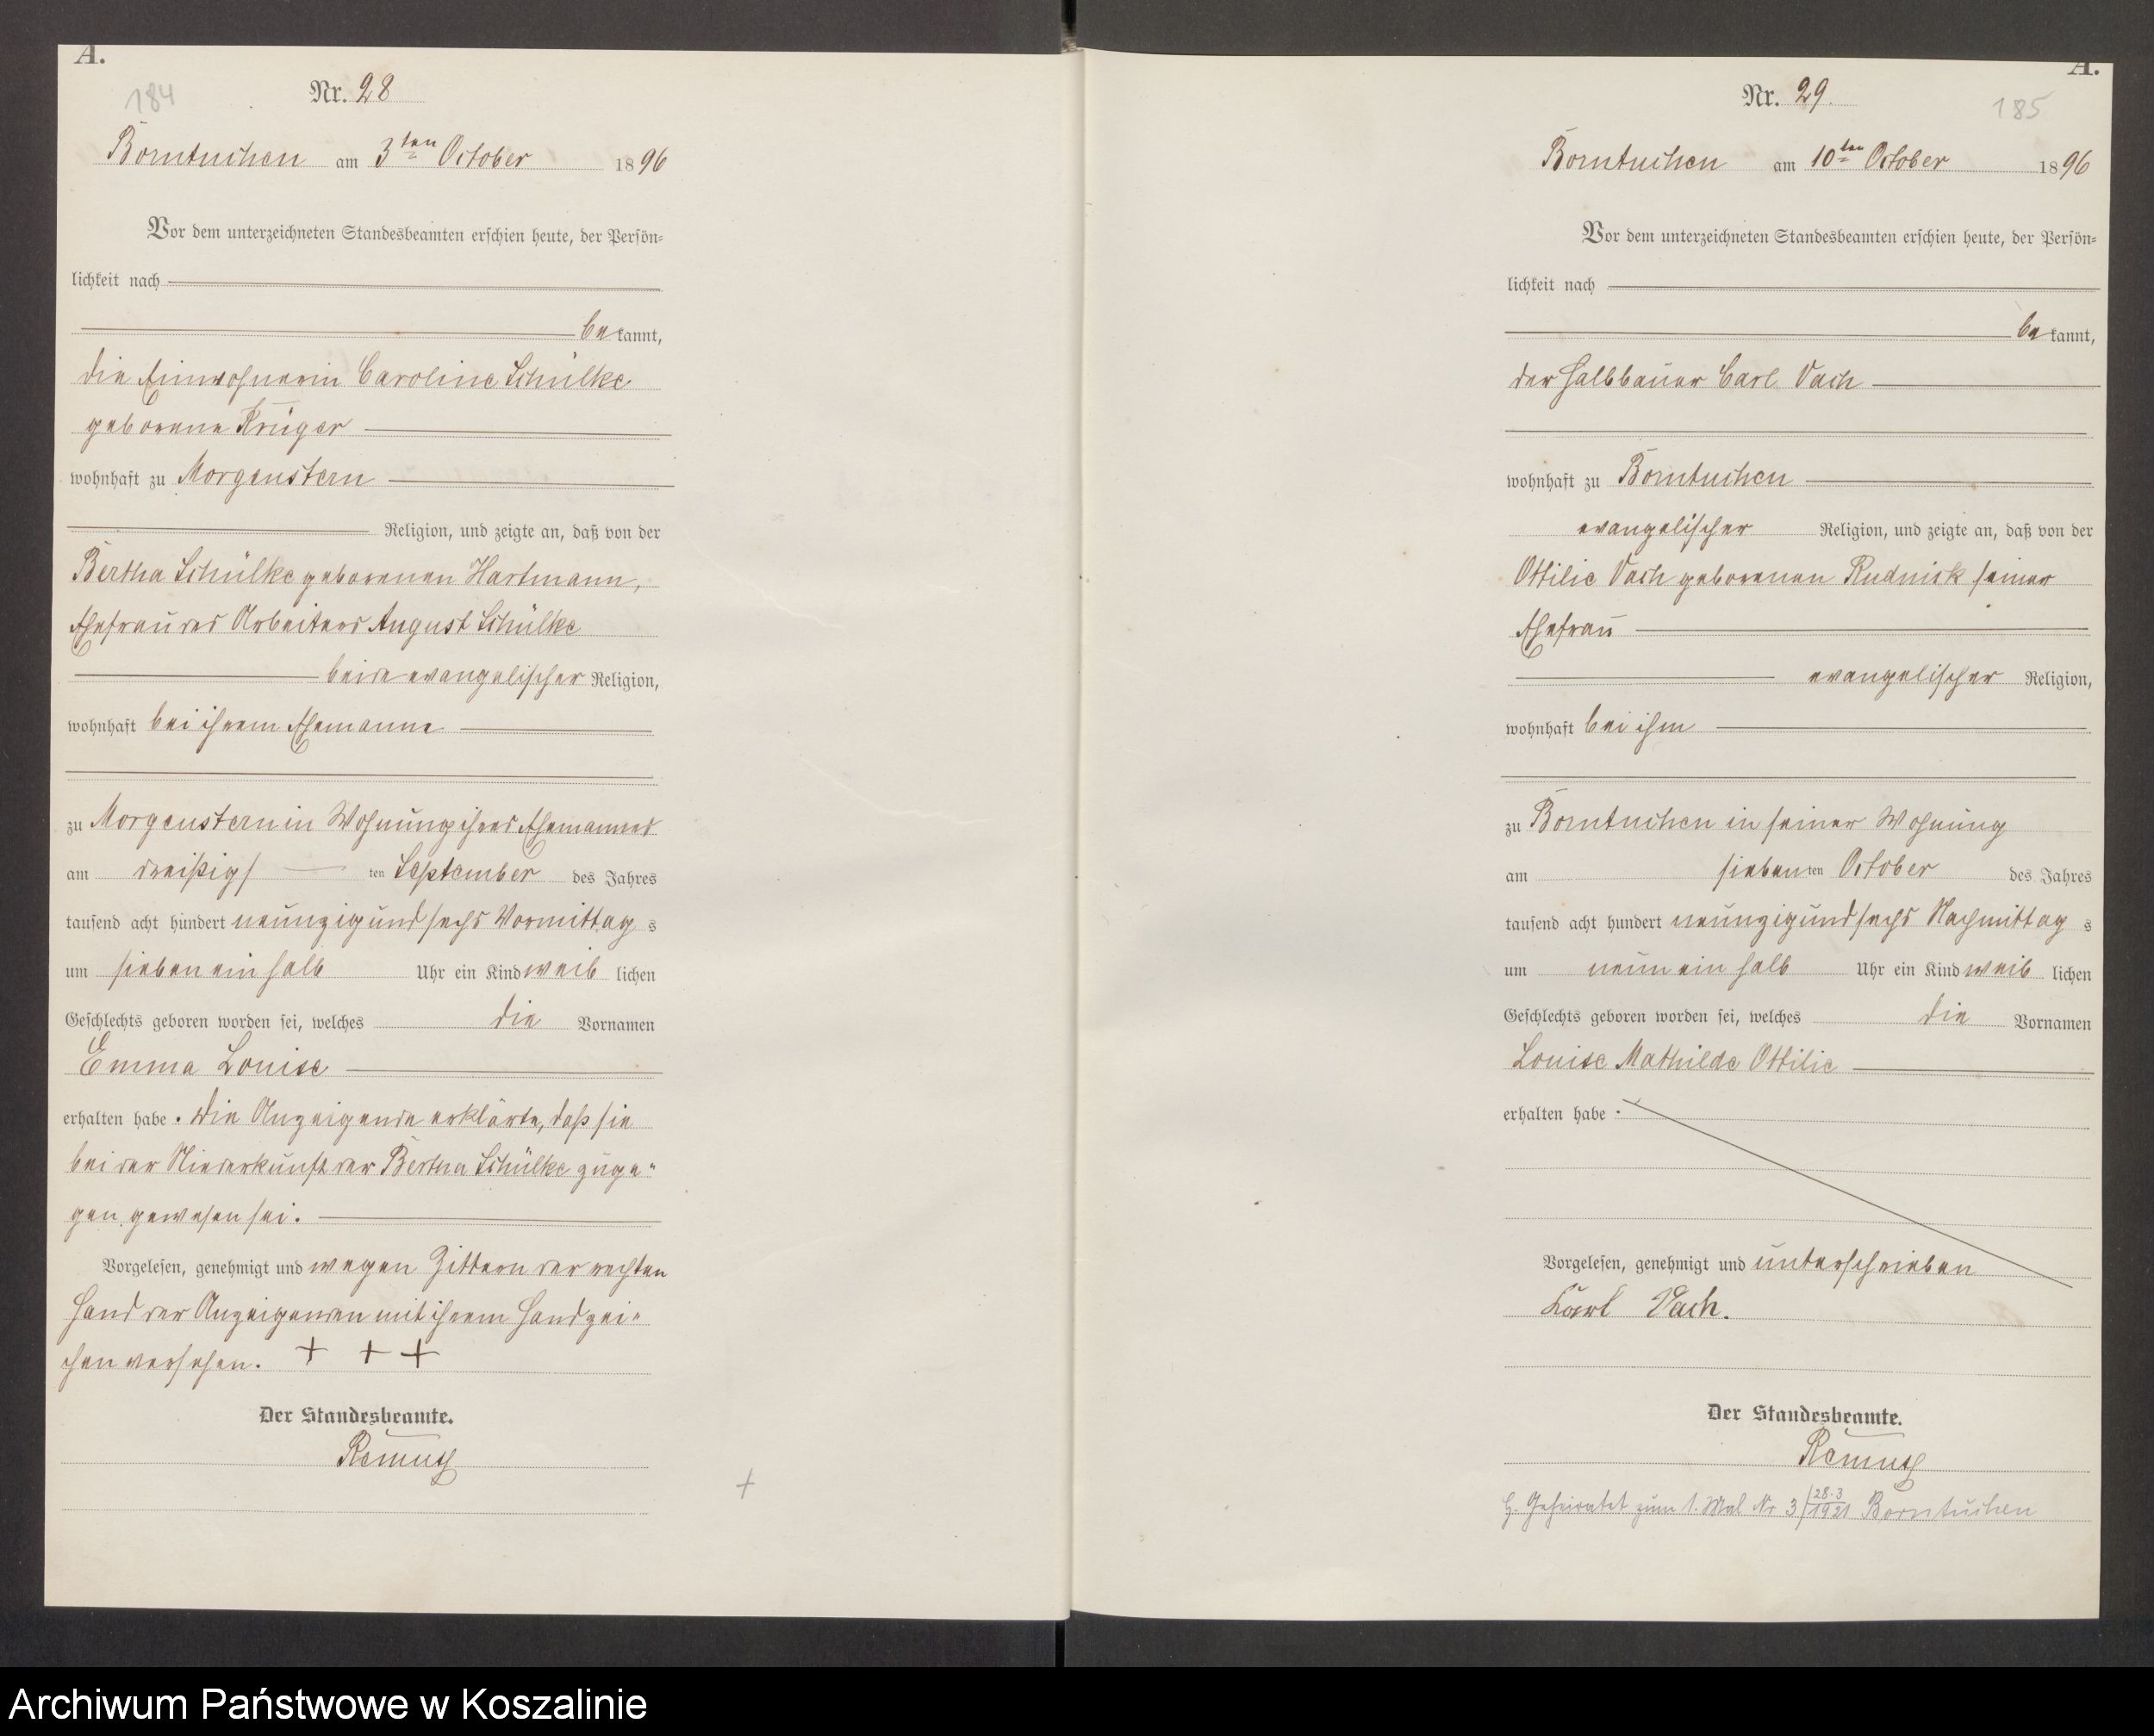 A.
184
Nr. 28
Borntuchen am 3ten October 1896
Vor dem unterzeichneten Standesbeamten erschien heute, der Persön-
lichkeit nach
bekannt,
die Einwohnerin Caroline Schülke
geborene Krüger
wohnhaft zu Morgenstern
Religion, und zeigte an, daß von der
Bertha Schülke geborenen Hartmann,
Ehefrau des Arbeiters August Schülke
beide evangelischer Religion,
wohnhaft bei ihrem Ehemanne
zu Morgenstern in Wohnung ihres Ehemannes
am dreißigs ten September des Jahres
tausend acht hundert neunzig und sechs Vormittag s
um sieben ein halb Uhr ein Kind weib lichen
Geschlechts geboren worden sei, welches die Vornamen
Emma Louise
erhalten habe. Die Anzeigende erklärte, daß sie
bei der Niederkunft der Bertha Schülke zuge-
gen gewesen sei.
Vorgelesen, genehmigt und wegen Zittern der rechten
Hand der Anzeigenden mit ihrem Handzei-
chen versehen. + + +
Der Standesbeamte.
Remus
+
A.
185
Nr. 29.
Borntuchen am 10ten October 1896
Vor dem unterzeichneten Standesbeamten erschien heute, der Persön-
lichkeit nach
bekannt,
der Halbbauer Carl Vach
wohnhaft zu Borntuchen
evangelischer Religion, und zeigte an, daß von der
Ottilie Vach geborenen Rudnick seiner
Ehefrau
evangelischer Religion,
wohnhaft bei ihm
zu Borntuchen in seiner Wohnung
am sieben ten October des Jahres
tausend acht hundert neunzig und sechs Nachmittag s
um neun ein halb Uhr ein Kind weib lichen
Geschlechts geboren worden sei, welches die Vornamen
Louise Mathilde Ottilie
erhalten habe.
Vorgelesen, genehmigt und unterschrieben
Karl Vach.
Der Standesbeamte.
Remus
G. Geheiratet zum 1. Mal Nr 3/28.3 1921 Borntuchen
Archiwum Państwowe w Koszalinie